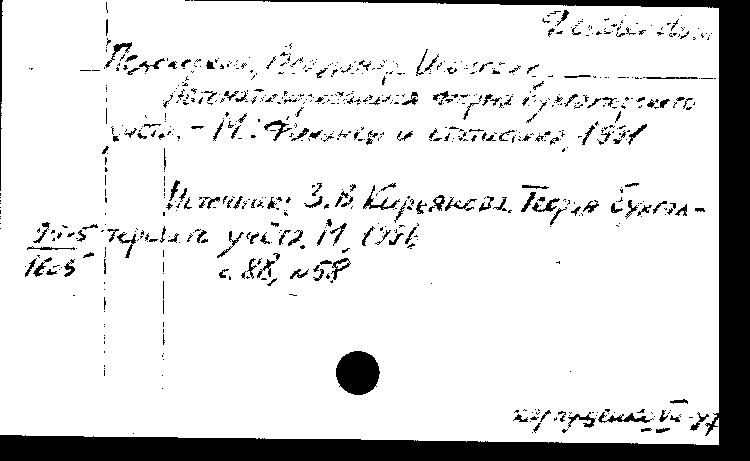 Desiderdum
Владимир
Автоматизированная форма бухгалтерского
учёта. – М.: Финансы и статистика, 1991
Источник: З.В. Кирьянова. Теория бухгал-
терского учёта. М, 1996
с. 88, №58
VII-97